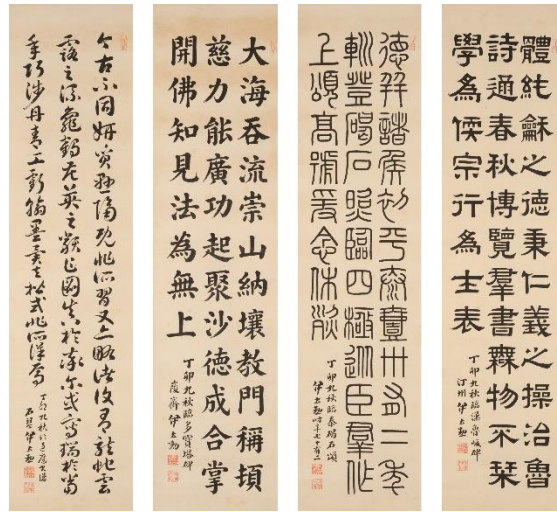 體純龢之德秉仁義之操治魯
詩通春秋博覽羣書無物不栞
學為偄宗行為士表
丁卯九秋臨漢魯峻碑
汀州伊立勳
德并諸侯初平泰壹卅有二年
登碣石照臨四極從臣羣作
上頌高號爰念休烈
丁卯九秋臨秦碣石頌
伊立勳時年七十有二
大海吞流崇山納壤教門稱頓
慈力能廣功起聚沙德成合掌
開佛知見法為無上
丁卯九秋臨多寶塔碑
伊立勳
今古不同妍質懸隔既非所習又亦略諸復有龍蛇雲
露之流龜鶴花英之類乍圖真於率爾或寫瑞於當
年巧涉丹青工虧翰墨異夫楷式非所詳焉
丁卯九秋
石琴伊立勳